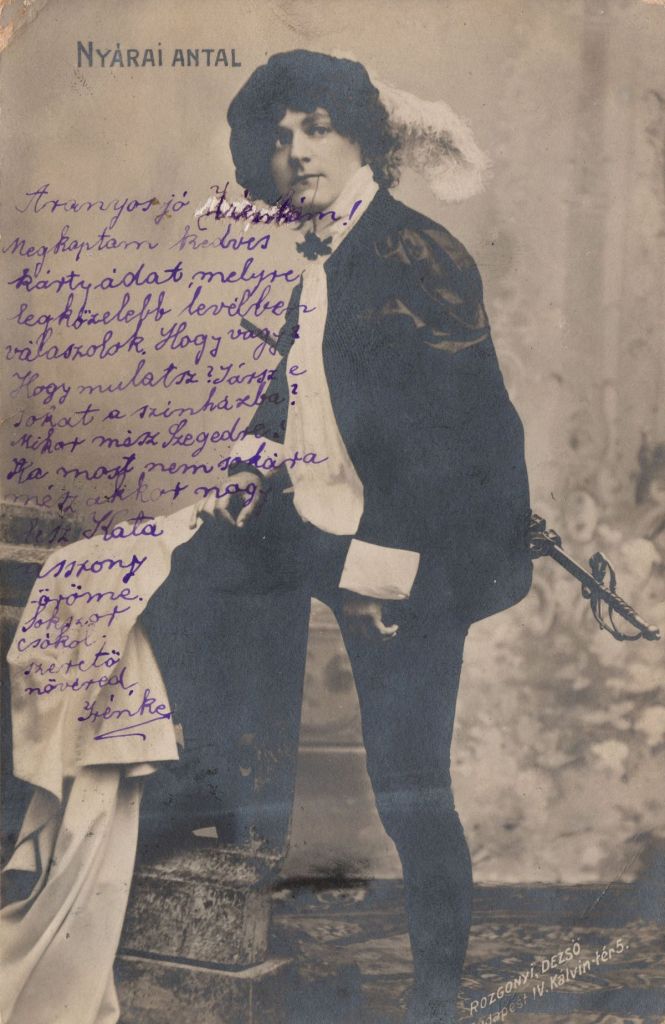 NYÁRAI ANTAL
Aranyos jó
Megkaptam kedves
kártyádat, melyre
legközelebb levélben
válaszolok. Hogy vagy?
Hogy mulatsz? Jársz e
sokat a szinházba?
Mikor mész Szegedre?
Ha most nem sokára
mész akkor nagy
lesz Kata
asszony
öröme.
Sokszor
csókol
szerető
nővered
Irénke
ROZGONYI, DEZSŐ
Budapest IV. Kálvin-tér 5.